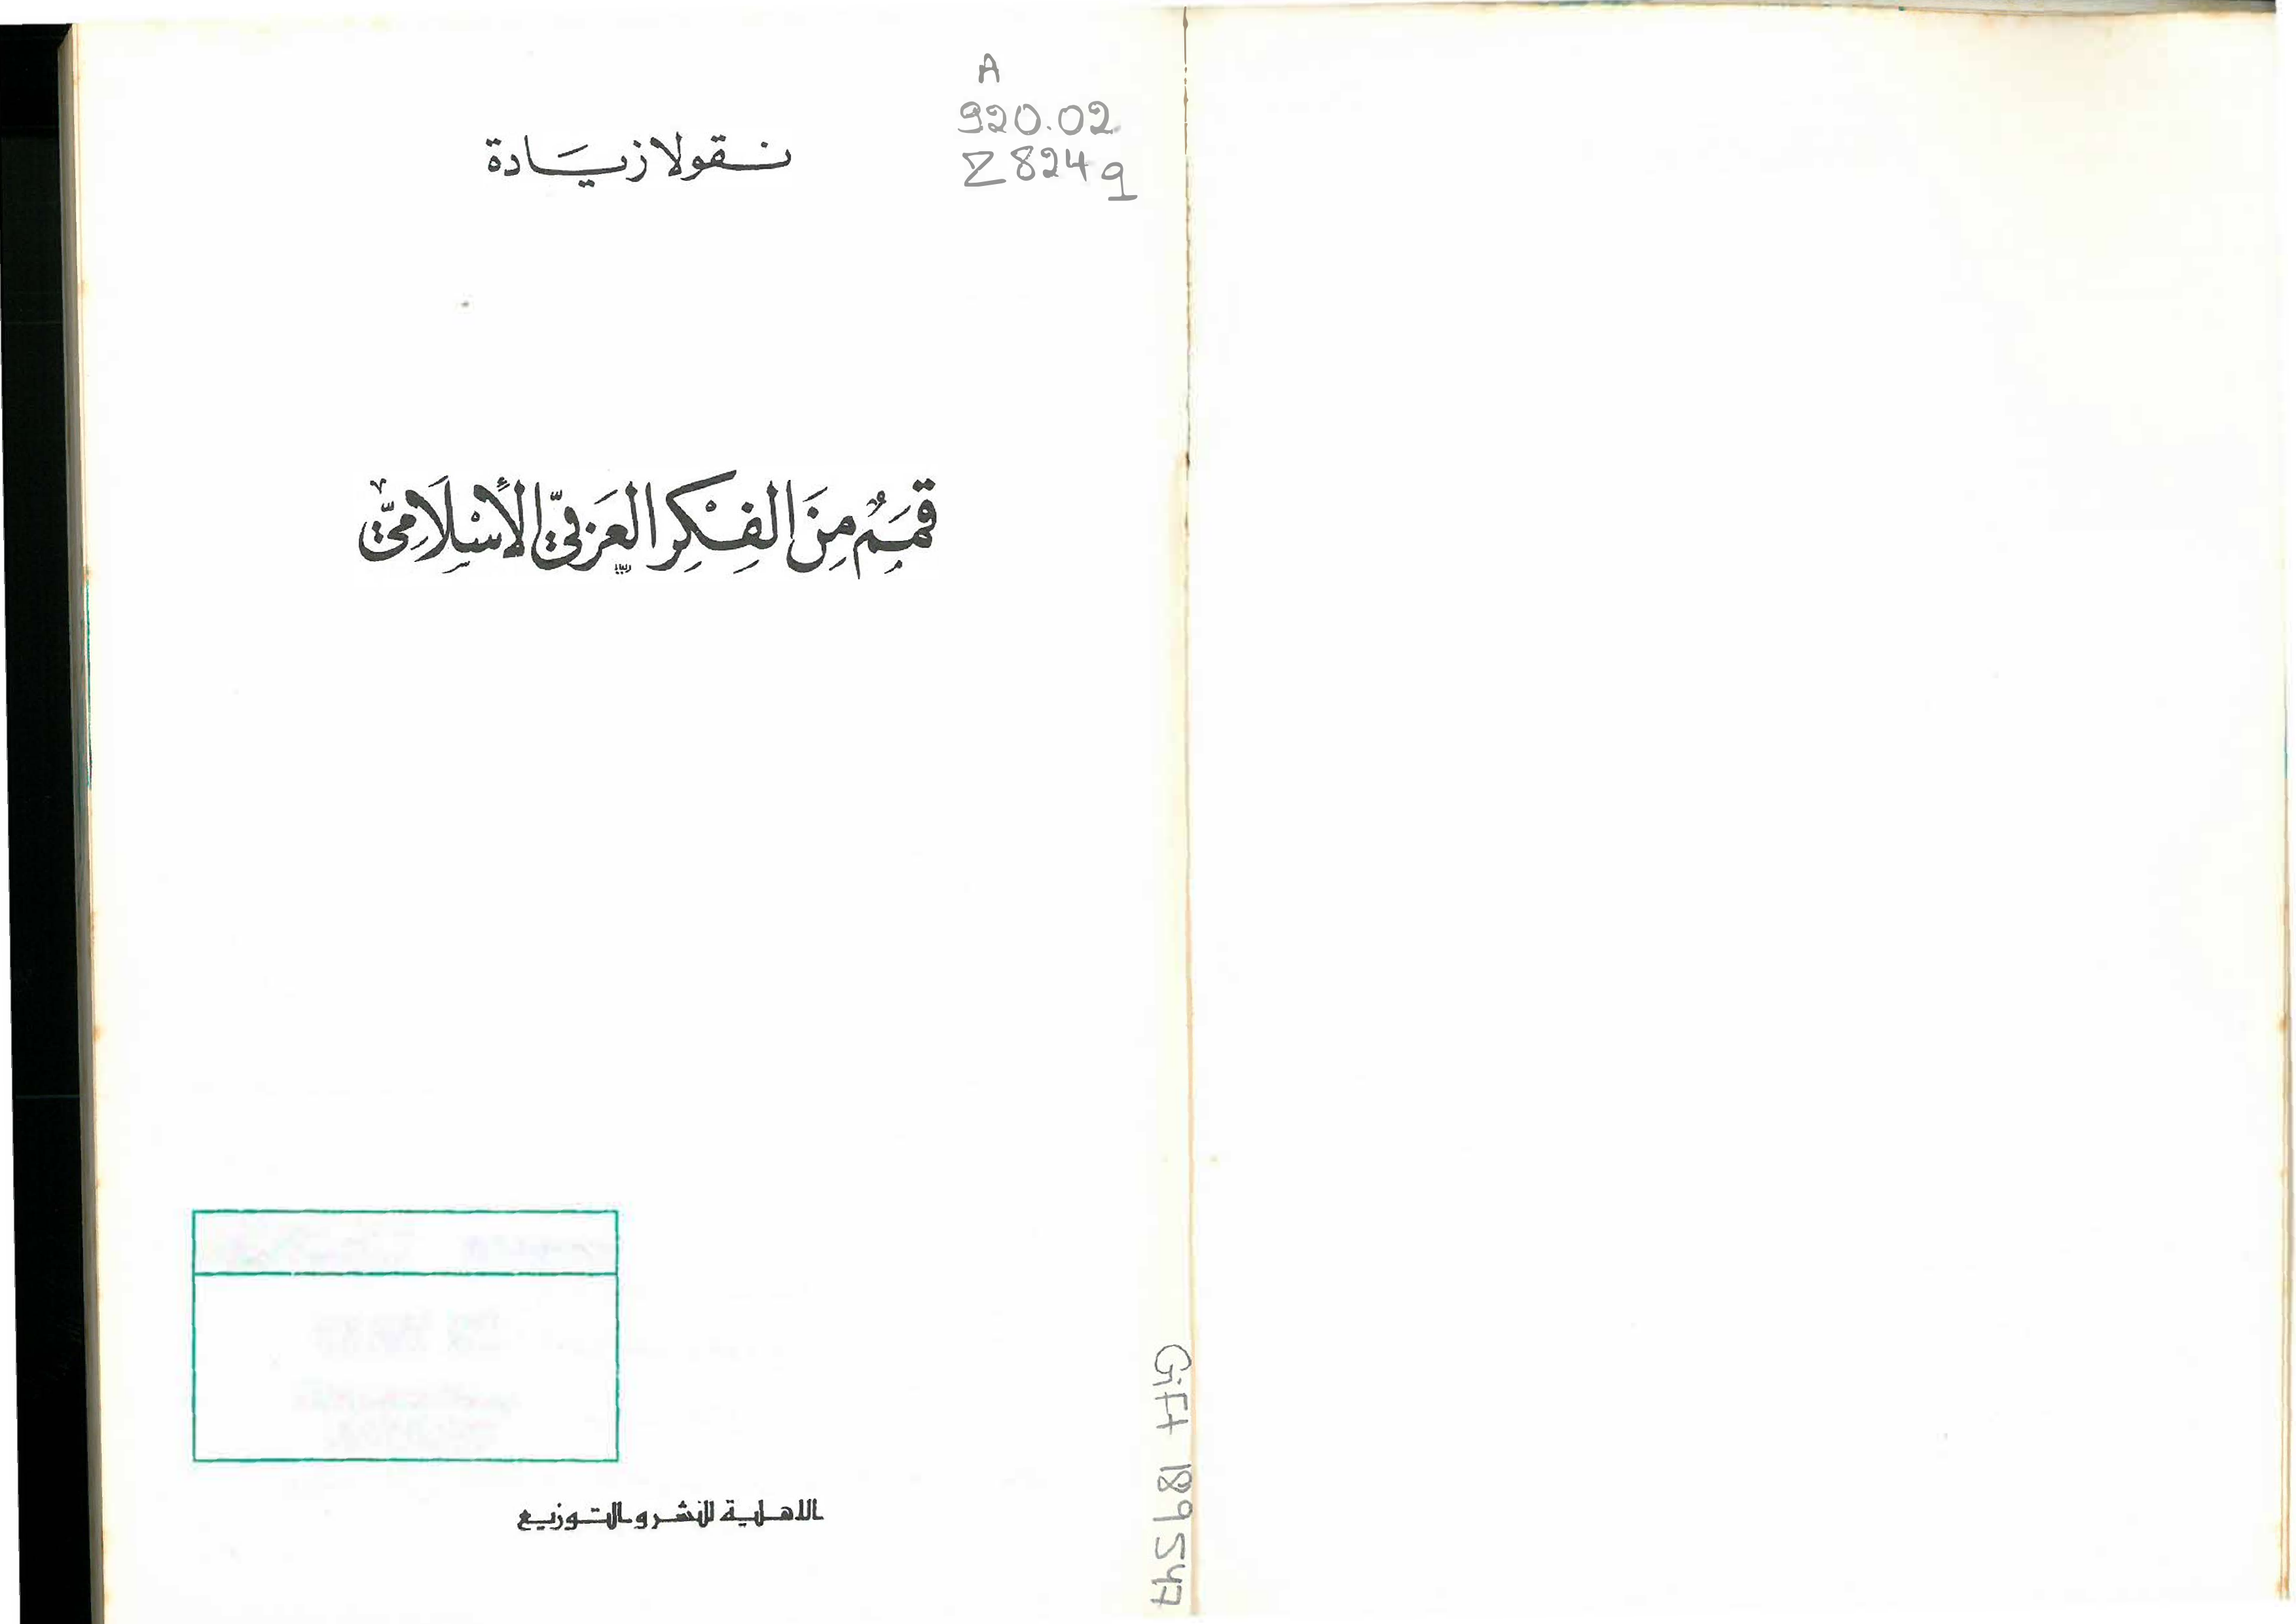 A
920.02
Z824q
نقولا زيادة
قِمَمٌ مِنَ الفِكْرِ العَرَبيّ الإِسْلَاميّ
الاهلية للنشر والتوزيع
Gift 189547